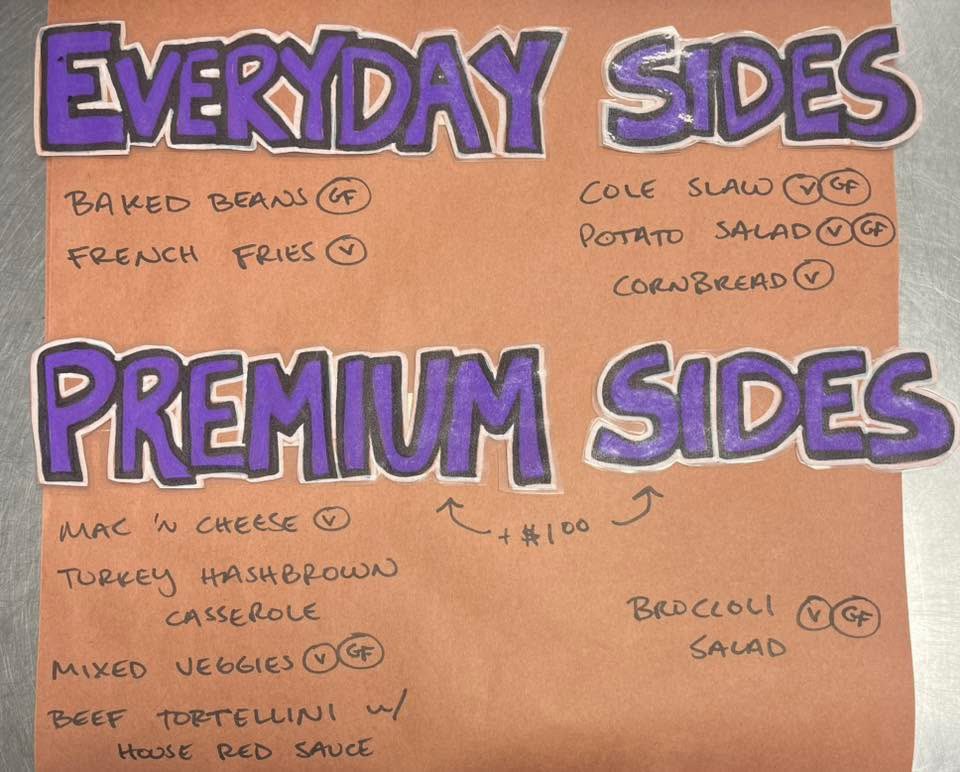 EVERYDAY SIDES
BAKED BEANS GF
FRENCH FRIES V
COLE SLAW V GF
POTATO SALAD V GF
CORNBREAD V
PREMIUM SIDES
+ $1.00
MAC 'N CHEESE V
TURKEY HASHBROWN
CASSEROLE
MIXED VEGGIES V GF
BEEF TORTELLINI w/
HOUSE RED SAUCE
BROCCOLI V GF
SALAD